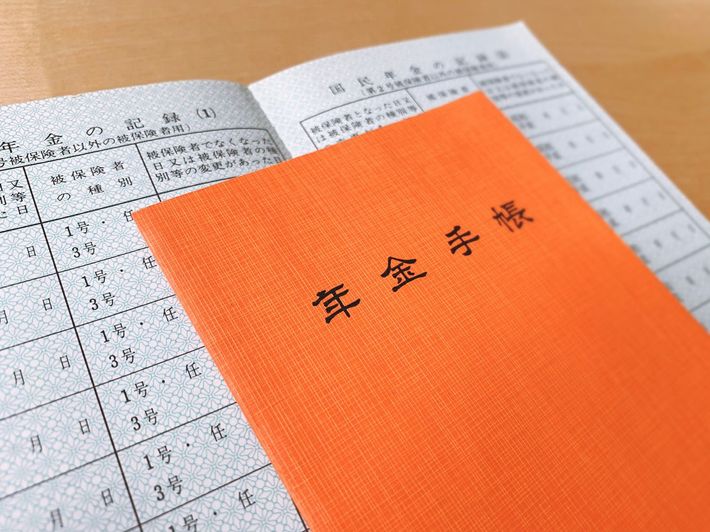 年金の記録(1)
号被保険者以外の被保険者用)
日又
別等
た日
被保険者
の種別
被保険者でなくなった
日又は被保険者の種
別等の変更があった日
日
1号・任
3号
月 日
1号・任
3号
月 日
1号・任
3号
月 日
1号・任
3号
月 日
1号・任
3号
月 日
1号・任
3号
国民年金の記録
(第2号被保険者以外の被保険者用)
被保険者となった日又
は被保険者の種別等
被保険者
年金手帳